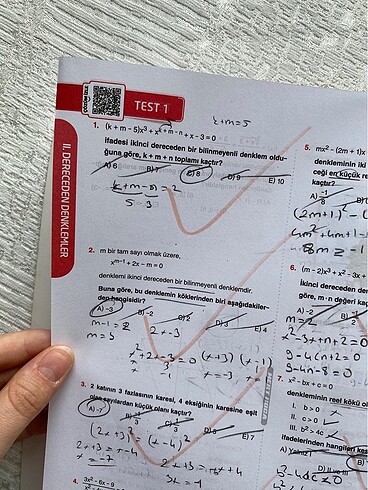 TEST 1
II. DERECEDEN DENKLEMLER
k+m=5
1. (k + m – 5)x³ + x^(k + m – n) + x – 3 = 0
ifadesi ikinci dereceden bir bilinmeyenli denklem oldu-
ğuna göre, k + m + n toplamı kaçtır?
A) 6 B) 7 C) 8 D) 9 E) 10
k+m-n = 2
5 3
2. m bir tam sayı olmak üzere,
x^(m–1) + 2x – m = 0
denklemi ikinci dereceden bir bilinmeyenli denklemdir.
Buna göre, bu denklemin köklerinden biri aşağıdakiler-
den hangisidir?
A) –3 B) –2 C) 2 D) 3 E) 4
m-1=2
m=3
x²+2x-3=0 (x+3) (x-1)
x=-3
3. 2 katının 3 fazlasının karesi, 4 eksiğinin karesine eşit
olan sayılardan küçük olanı kaçtır?
A) –7 E) 7
(2x+3)² = (x-4)²
2x+3=x-4
x=-7
2x+3=-x+4
3x=1
4. 3x² – 6x – 9
5. mx² – (2m + 1)x
denkleminin iki
ceği en küçük
kaçtır?
6. (m – 2)x³ + x² – 3x +
ikinci dereceden
göre, m·n değeri kaç
m=2
x²-3x+n+2=0
9-4(n+2)=0
9-4n-8=0
7. x² – bx + c = 0
denkleminin reel kökü ol
I. b > 0
II. c < 0
III. b² > 4c
ifadelerinden hangileri
A) Yalnız I